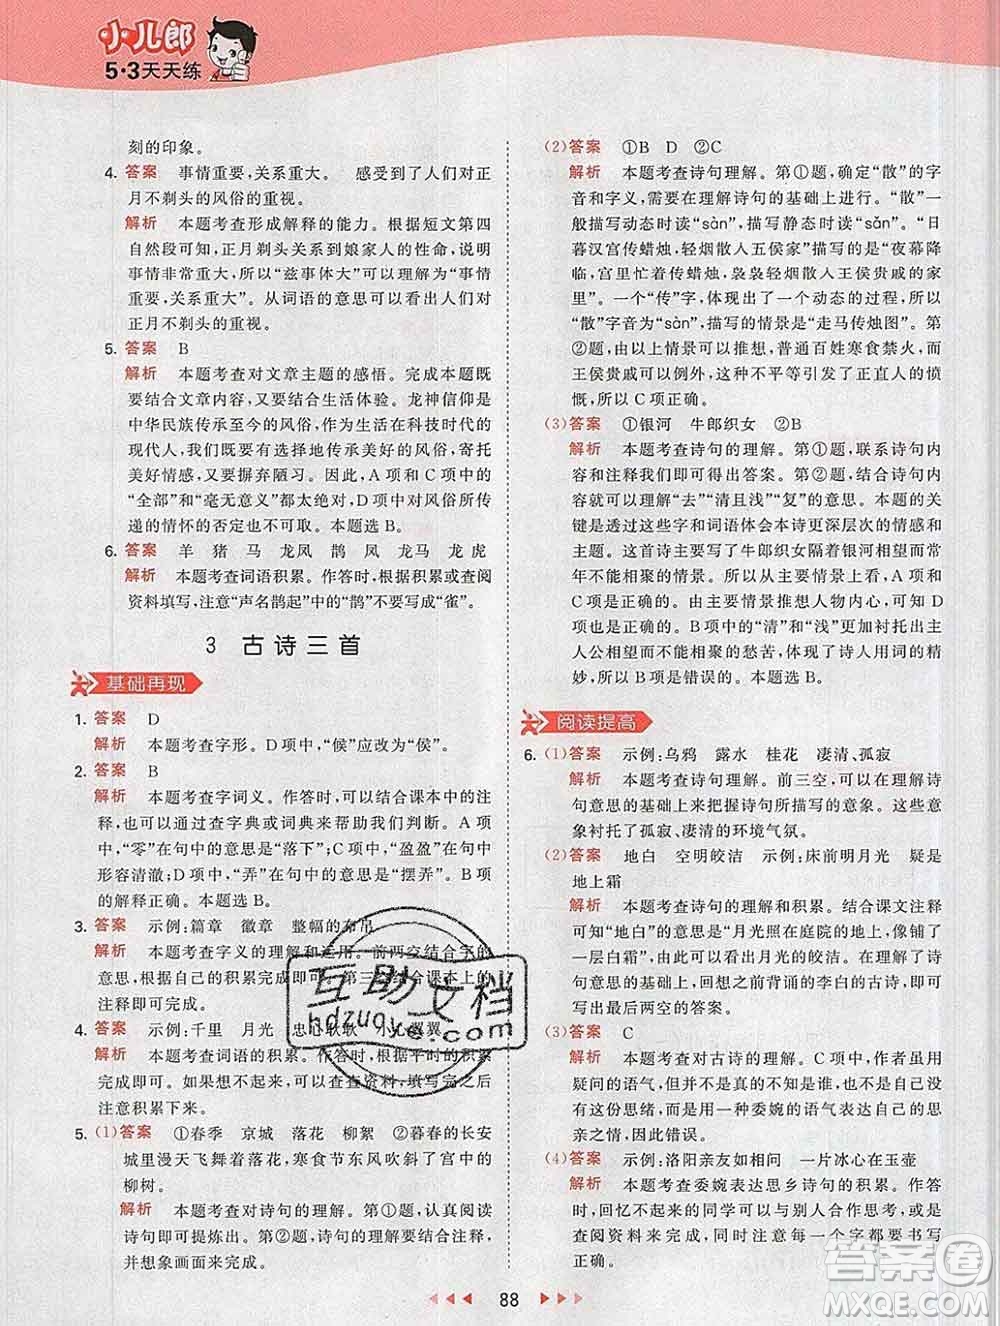 小儿郎
5·3天天练
刻的印象。
4. 答案 事情重要,关系重大。 感受到了人们对正
月不剃头的风俗的重视。
解析 本题考查形成解释的能力。根据短文第四
自然段可知,正月剃头关系到娘家人的性命,说明
事情非常重大,所以“兹事体大”可以理解为“事情
重要,关系重大”。从词语的意思可以看出人们对
正月不剃头的重视。
5. 答案 B
解析 本题考查对文章主题的感悟。完成本题既
要结合文章内容,又要结合生活体验。龙神信仰是
中华民族传承至今的风俗,作为生活在科技时代的
现代人,我们要有选择地传承美好的风俗,寄托
美好情感,又要摒弃陋习。因此,A项和C项中的
“全部”和“毫无意义”都太绝对,D项中对风俗所传
递的情怀的否定也不可取。本题选B。
6. 答案 羊 猪 马 龙凤 鹊 凤 龙马 龙虎
解析 本题考查词语积累。作答时,根据积累或查阅
资料填写,注意“声名鹊起”中的“鹊”不要写成“雀”。
3 古诗三首
基础再现
1. 答案 D
解析 本题考查字形。D项中,“候”应改为“侯”。
2. 答案 B
解析 本题考查字词义。作答时,可以结合课本中的注
释,也可以通过查字典或词典来帮助我们判断。A项
中,“零”在句中的意思是“落下”;C项中,“盈盈”在句中
形容清澈;D项中,“弄”在句中的意思是“摆弄”。B项
的解释正确。本题选B。
3. 答案 示例:篇章 徽章 整幅的布帛
解析 本题考查字义的理解和运用。前两空结合字的
意思,根据自己的积累完成即可。第三空结合课本上的
注释即可完成。
4. 答案 示例:千里 月光 忠心耿耿 小心翼翼
解析 本题考查词语的积累。作答时,根据平时的积累
完成即可。如果想不起来,可以查资料,填写完之后
注意积累下来。
5. (1)答案 ①春季 京城 落花 柳絮 ②暮春的长安
城里漫天飞舞着落花,寒食节东风吹斜了宫中的
柳树。
解析 本题考查对诗句的理解。第①题,认真阅读
诗句即可提炼出。第②题,诗句的理解要结合注释,
并想象画面来完成。
(2)答案 ①B D ②C
解析 本题考查诗句理解。第①题,确定“散”的字
音和字义,需要在理解诗句的基础上进行。“散”一
般描写动态时读“sàn”,描写静态时读“sǎn”。“日
暮汉宫传蜡烛,轻烟散入五侯家”描写的是“夜幕降
临,宫里忙着传蜡烛,袅袅轻烟散入王侯贵戚的家
里”。一个“传”字,体现了一个动态的过程,所以
“散”字音为“sàn”,描写的情景是“走马传烛图”。第
②题,由以上情景可以推想,普通百姓寒食禁火,而
王侯贵戚可以例外,这种不平等引发了正直人的愤
慨,所以C项理解正确。
(3)答案 ①银河 牛郎织女 ②B
解析 本题考查诗句的理解。第①题,联系诗句内
容和注释我们即可得出答案。第②题,结合诗句内
容就可以理解“去”“清且浅”“复”的意思。本题的关
键是透过这些字和词语体会本诗更深层次的情感和
主题。这首诗主要描写了牛郎织女隔着银河相望而
不能相聚的情景。所以从主题上看,A项中终年
不能相聚正确;由主要情景推想人物内心,可知D
项正确;C项中的“清”和“浅”更加衬托出两个主人
公相望而不能相聚的愁苦,体现了诗人用词的精
妙,所以B项是错误的。本题选B。
阅读提高
6. (1)答案 示例:乌鸦 露水 桂花 凄清、孤寂
解析 本题考查诗句理解。前三空,可以在理解诗
句意思的基础上来把握诗句所描写的意象。这些意
象衬托了孤寂、凄清的环境气氛。
(2)答案 地白 空明皎洁 示例:床前明月光 疑是
地上霜
解析 本题考查诗句的理解和积累。结合课文注释
可知“地白”意思是“月光照在庭院的地上,像铺了
一层白霜”,可见月光的皎洁。结合之前背诵的李白的古诗,即
可写出最后两空的答案。
(3)答案 C
解析 本题考查对古诗的理解。C项中,作者虽用
疑问的语气,表达的却是自己望月怀远、思念亲人,
倍感孤独的思绪。这种委婉的语气表达出自己的思
亲之情,因此错误。
(4)答案 示例:洛阳亲友如相问 一片冰心在玉壶
解析 本题考查委婉表达思乡诗句的积累。作答
时,回忆不起来的同学可以与别人合作思考,或者
查阅资料来完成。填写时,每一个字都要书写
正确。
88
互助文档
hdzuoye.com
答案圈
MXQE.COM